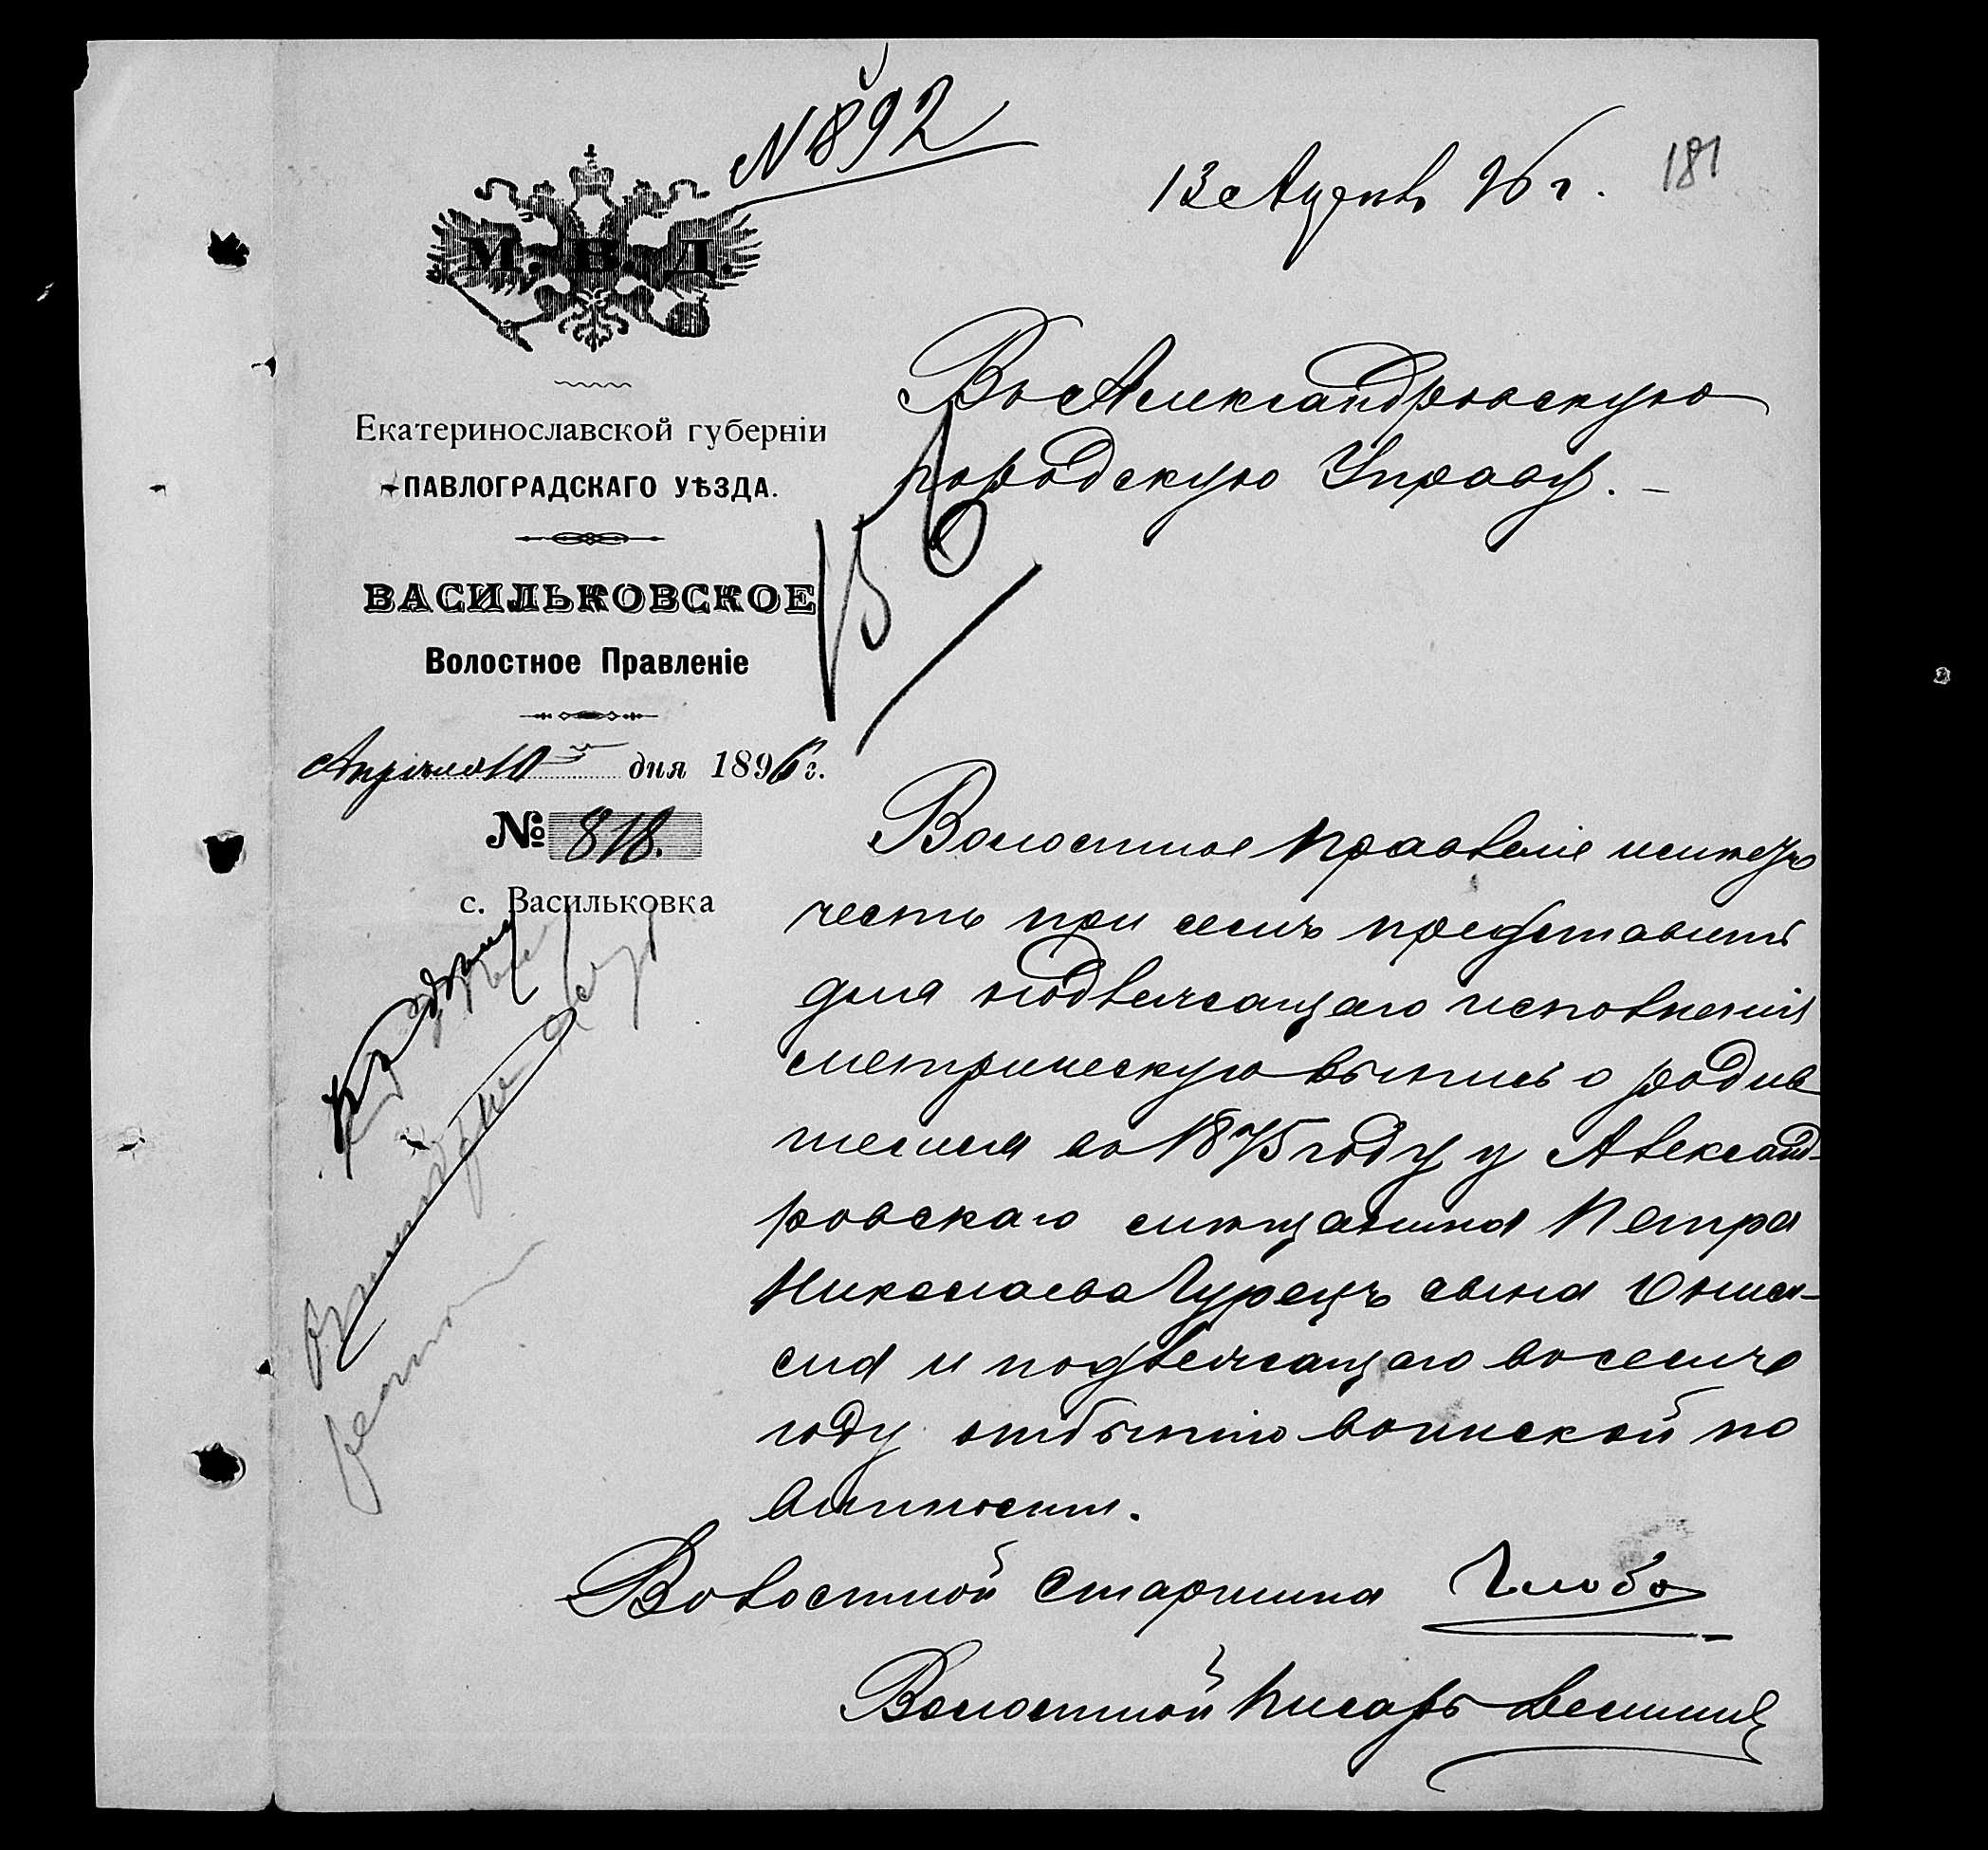 N 892
13 Апрель 96 г.
181
М. В. Д.
Екатеринославской губерніи
ПАВЛОГРАДСКАГО УѢЗДА.
ВАСИЛЬКОВСКОЕ
Волостное Правленіе
Апрѣля 10 дня 1896 г.
№ 818.
с. Васильковка
Въ Александровскую
городскую Управу.
Волостное Правленіе имѣетъ
честь при семъ представить
для подлежащаго исполненія
метрическую выпись о родив
шемся въ 1875 году у Александ-
ровскаго мѣщанина Петра
Николаева Гурецъ сына
и подлежащаго въ семъ
году отбытію воинской по
винности.
Волостной Старшина Глоба
Волостной Писарь